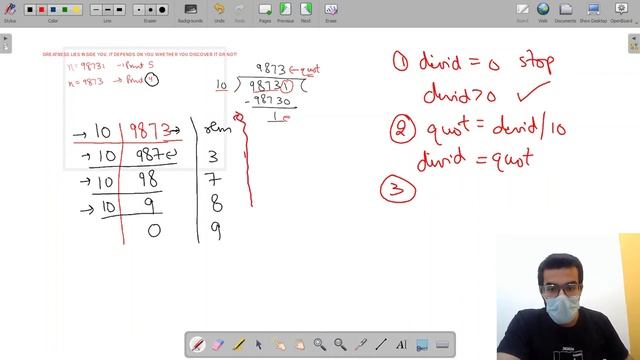 Stylus
Color
Line
Eraser
Backgrounds
Undo
Redo
Page
Previous
Next
Erase
Board
Web
Documents
Show Desktop
OpenBoard
GREATNESS LIES INSIDE YOU. IT DEPENDS ON YOU WHETHER YOU DISCOVER IT OR NOT!
n = 98731 → Print 5
n = 9873 → Print 4
9873 ← quot
10 ) 98731 (
- 98730
1
→ 10 9873 → rem
→ 10 987 3
→ 10 98 7
→ 10 9 8
0 9
① divid = 0 stop
divid > 0 ✓
② quot = divid/10
divid = quot
③